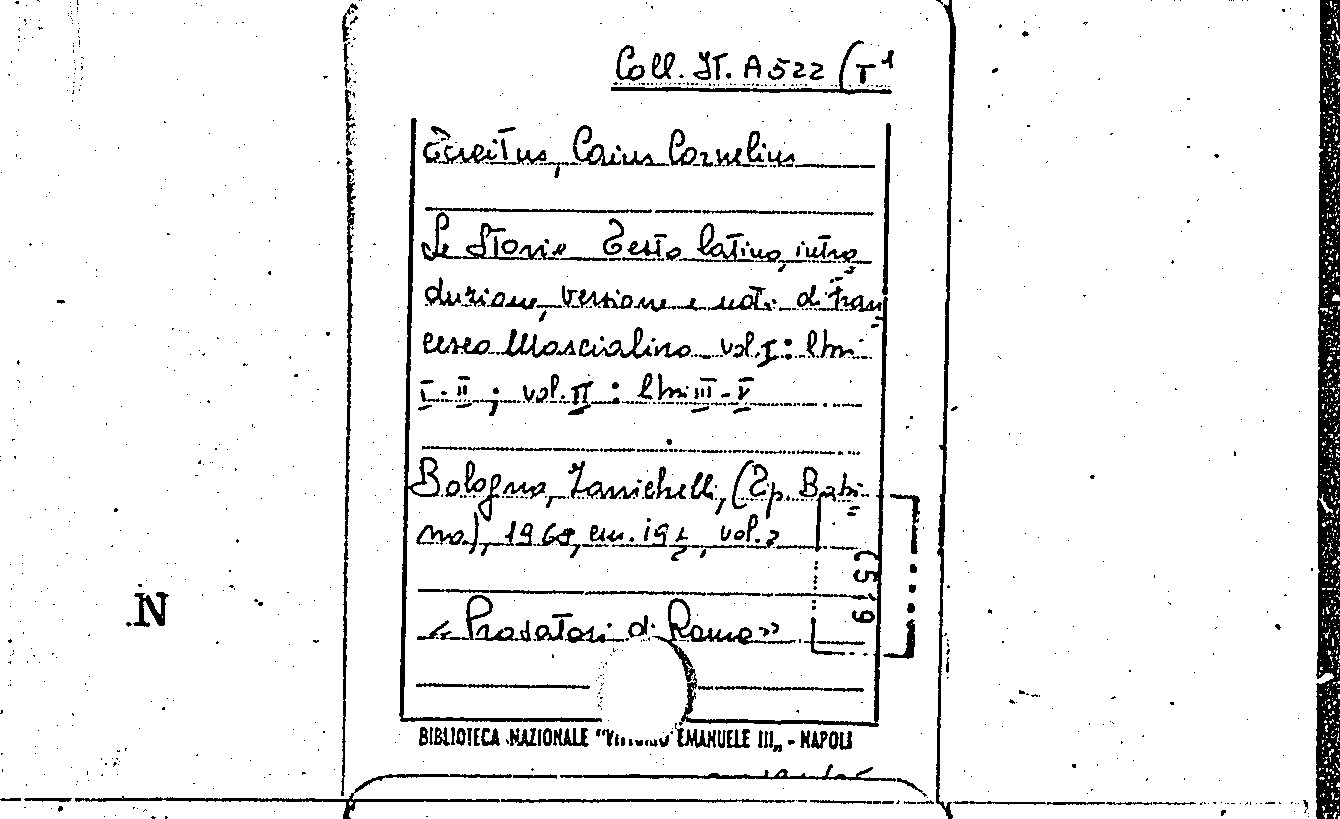 Coll. It. A 522 (T¹
Tacitus, Caius Cornelius
Le Storie Testo latino, intro
duzione, versione e note di Fran
cesco Mascialino vol. I: libri
I-II; vol. II: libri III-V
Bologna, Zanichelli, (Tip. Babi
na), 1968, cm. 19½, vol. 2
(519
«Prosatori di Roma»
.N
BIBLIOTECA NAZIONALE "VITTORIO EMANUELE III„ - NAPOLI